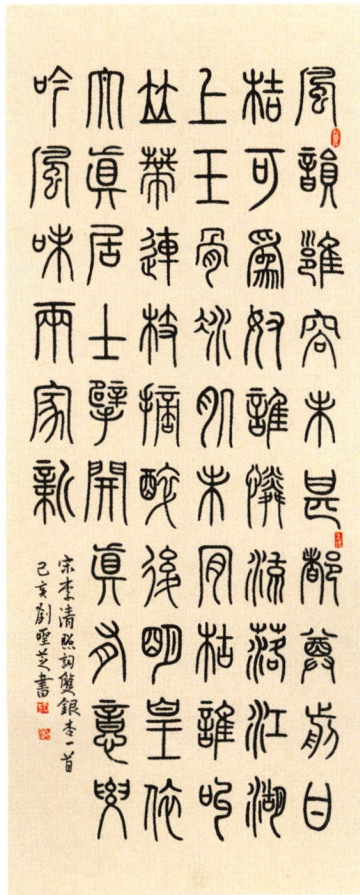 風韻雝容未甚都尊前甘
桔可爲奴誰憐流落江湖
上玉骨冰肌未肎枯誰叫
竝蒂連枝摘醉後明皇依
太眞居士擘開眞有意要
吟風味兩家新
宋李清照詞雙銀杏一首
己亥劉聖芝書